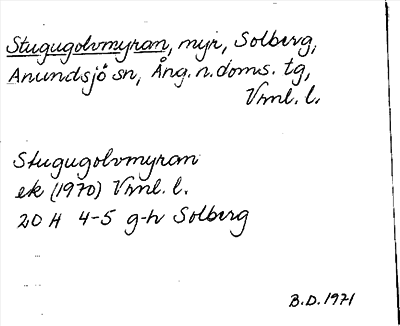 Stugugolvmyran, myr, Solberg,
Anundsjö sn, Ång. n. doms. tg,
Vrml. l.
Stugugolvmyran
ek (1970) Vrml. l.
20 H 4-5 g-h Solberg
B.D. 1971